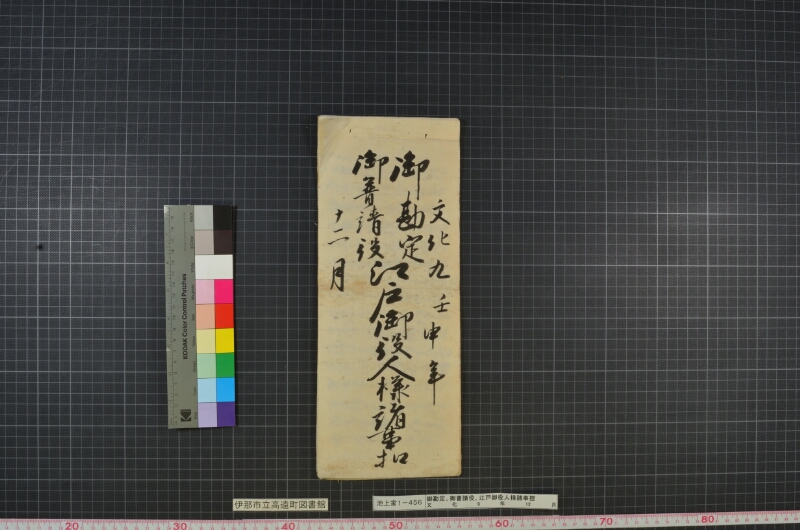 文化九壬申年
御勘定
御普請役
江戸御役人様諸事扣
十二月
KODAK Color Control Patches
Kodak
伊那市立高遠町図書館
池上家1-456
御勘定、御普請役、江戸御役人様諸事控
文化9年12月
20
30
40
50
60
70
80